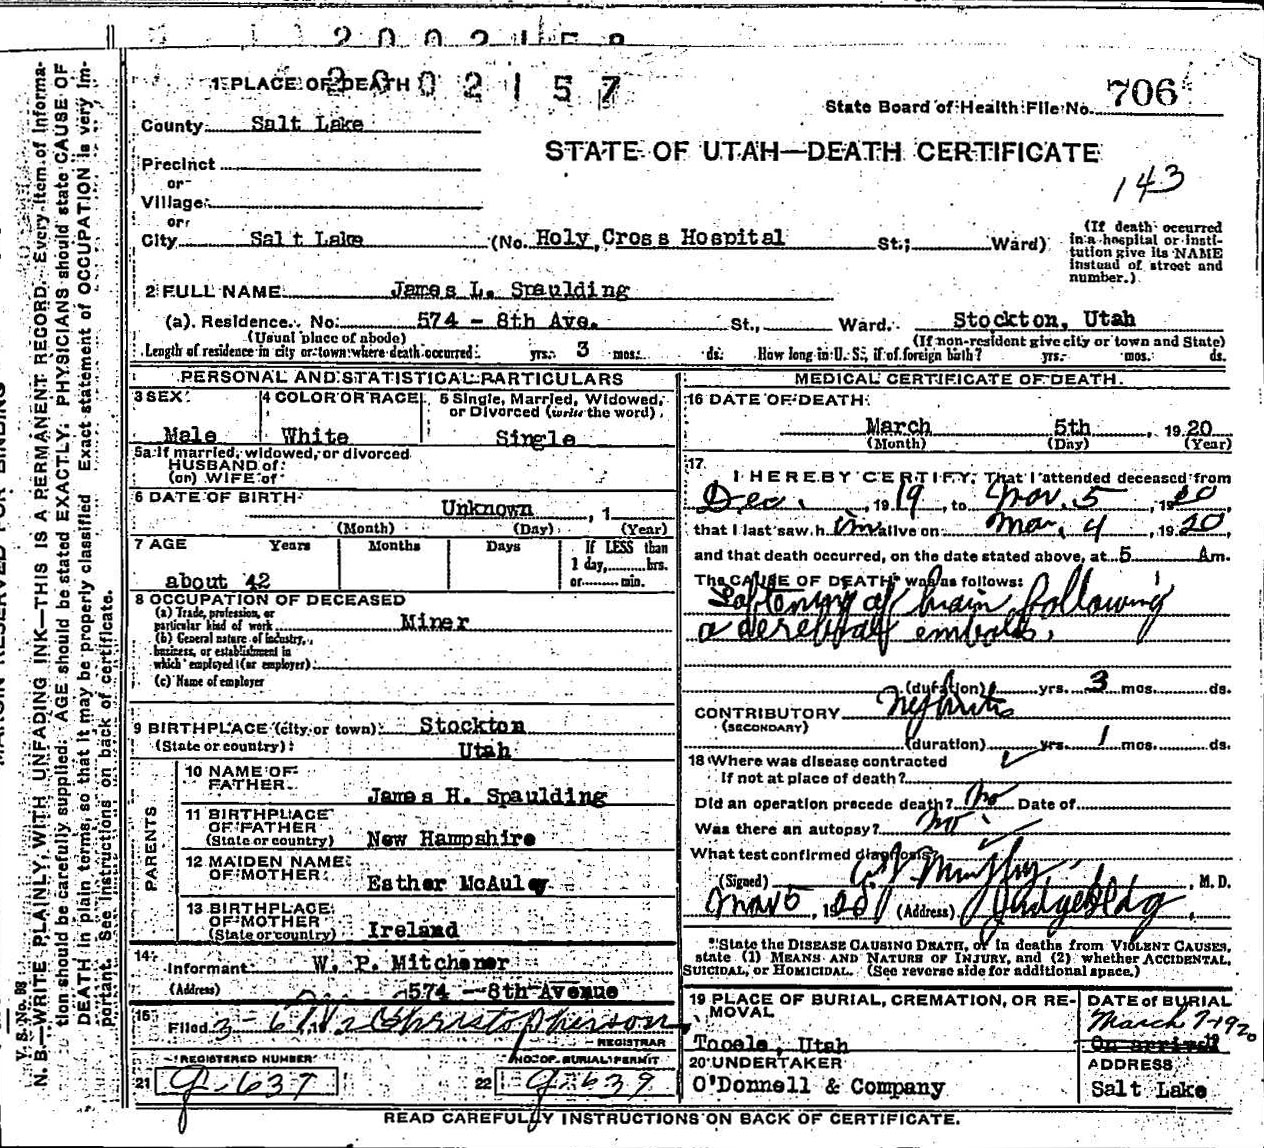 2002157
1 PLACE OF DEATH
State Board of Health File No. 706
County Salt Lake
STATE OF UTAH—DEATH CERTIFICATE
143
Precinct
or
Village
or
City Salt Lake (No. Holy Cross Hospital St.; Ward)
(If death occurred in a hospital or institution give its NAME instead of street and number.)
2 FULL NAME James L. Spaulding
(a). Residence. No. 574 - 8th Ave. St., Ward. Stockton, Utah
(Usual place of abode) (If non-resident give city or town and State)
Length of residence in city or town where death occurred yrs. 3 mos. ds. How long in U. S., if of foreign birth? yrs. mos. ds.
PERSONAL AND STATISTICAL PARTICULARS
3 SEX Male
4 COLOR OR RACE White
5 Single, Married, Widowed, or Divorced (write the word) Single
5a If married, widowed, or divorced
HUSBAND of
(or) WIFE of
6 DATE OF BIRTH Unknown, 1
(Month) (Day) (Year)
7 AGE Years Months Days If LESS than 1 day, hrs. or min.
about 42
8 OCCUPATION OF DECEASED
(a) Trade, profession, or particular kind of work Miner
(b) General nature of industry, business, or establishment in which employed (or employer)
(c) Name of employer
9 BIRTHPLACE (city or town) Stockton
(State or country) Utah
PARENTS
10 NAME OF FATHER James H. Spaulding
11 BIRTHPLACE OF FATHER (State or country) New Hampshire
12 MAIDEN NAME OF MOTHER Esther McAuley
13 BIRTHPLACE OF MOTHER (State or country) Ireland
14 Informant W. P. Mitchener
(Address) 574 - 8th Avenue
15 Filed 3-6 Christopherson
REGISTRAR
REGISTERED NUMBER NO. OF BURIAL PERMIT
21 G-637 22 G-639
MEDICAL CERTIFICATE OF DEATH.
16 DATE OF DEATH
March 5th, 1920
(Month) (Day) (Year)
17 I HEREBY CERTIFY, That I attended deceased from
Dec. , 1919, to Mar. 5, 1920
that I last saw him alive on Mar. 4, 1920
and that death occurred, on the date stated above, at 5 Am.
The CAUSE OF DEATH* was as follows:
Softening of brain following
a cerebral embolis.
(duration) yrs. 3 mos. ds.
CONTRIBUTORY Nephritis
(SECONDARY)
(duration) yrs. 1 mos. ds.
18 Where was disease contracted
If not at place of death?
Did an operation precede death? No Date of
Was there an autopsy? No
What test confirmed diagnosis?
(Signed) Murphy, M. D.
Mar 5, 1920 (Address) Judge Bldg,
*State the DISEASE CAUSING DEATH, or in deaths from VIOLENT CAUSES,
state (1) MEANS AND NATURE OF INJURY, and (2) whether ACCIDENTAL,
SUICIDAL, or HOMICIDAL. (See reverse side for additional space.)
19 PLACE OF BURIAL, CREMATION, OR REMOVAL Tooele, Utah
DATE of BURIAL March 7-1920
On arrival
20 UNDERTAKER O'Donnell & Company
ADDRESS Salt Lake
READ CAREFULLY INSTRUCTIONS ON BACK OF CERTIFICATE.
MARGIN RESERVED FOR BINDING
V. S. No. 88
N. B.—WRITE PLAINLY, WITH UNFADING INK—THIS IS A PERMANENT RECORD. Every item of informa-
tion should be carefully supplied. AGE should be stated EXACTLY. PHYSICIANS should state CAUSE OF
DEATH in plain terms, so that it may be properly classified. Exact statement of OCCUPATION is very im-
portant. See instructions on back of certificate.